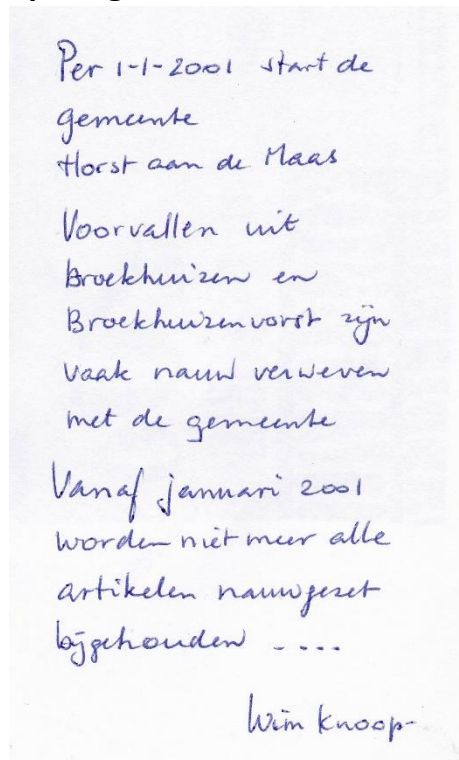 Per 1-1-2001 start de
gemeente
Horst aan de Maas
Voorvallen uit
Broekhuizen en
Broekhuizenvorst zijn
vaak nauw verweven
met de gemeente
Vanaf januari 2001
worden niet meer alle
artikelen nauwgezet
bijgehouden ....
Wim Knoop